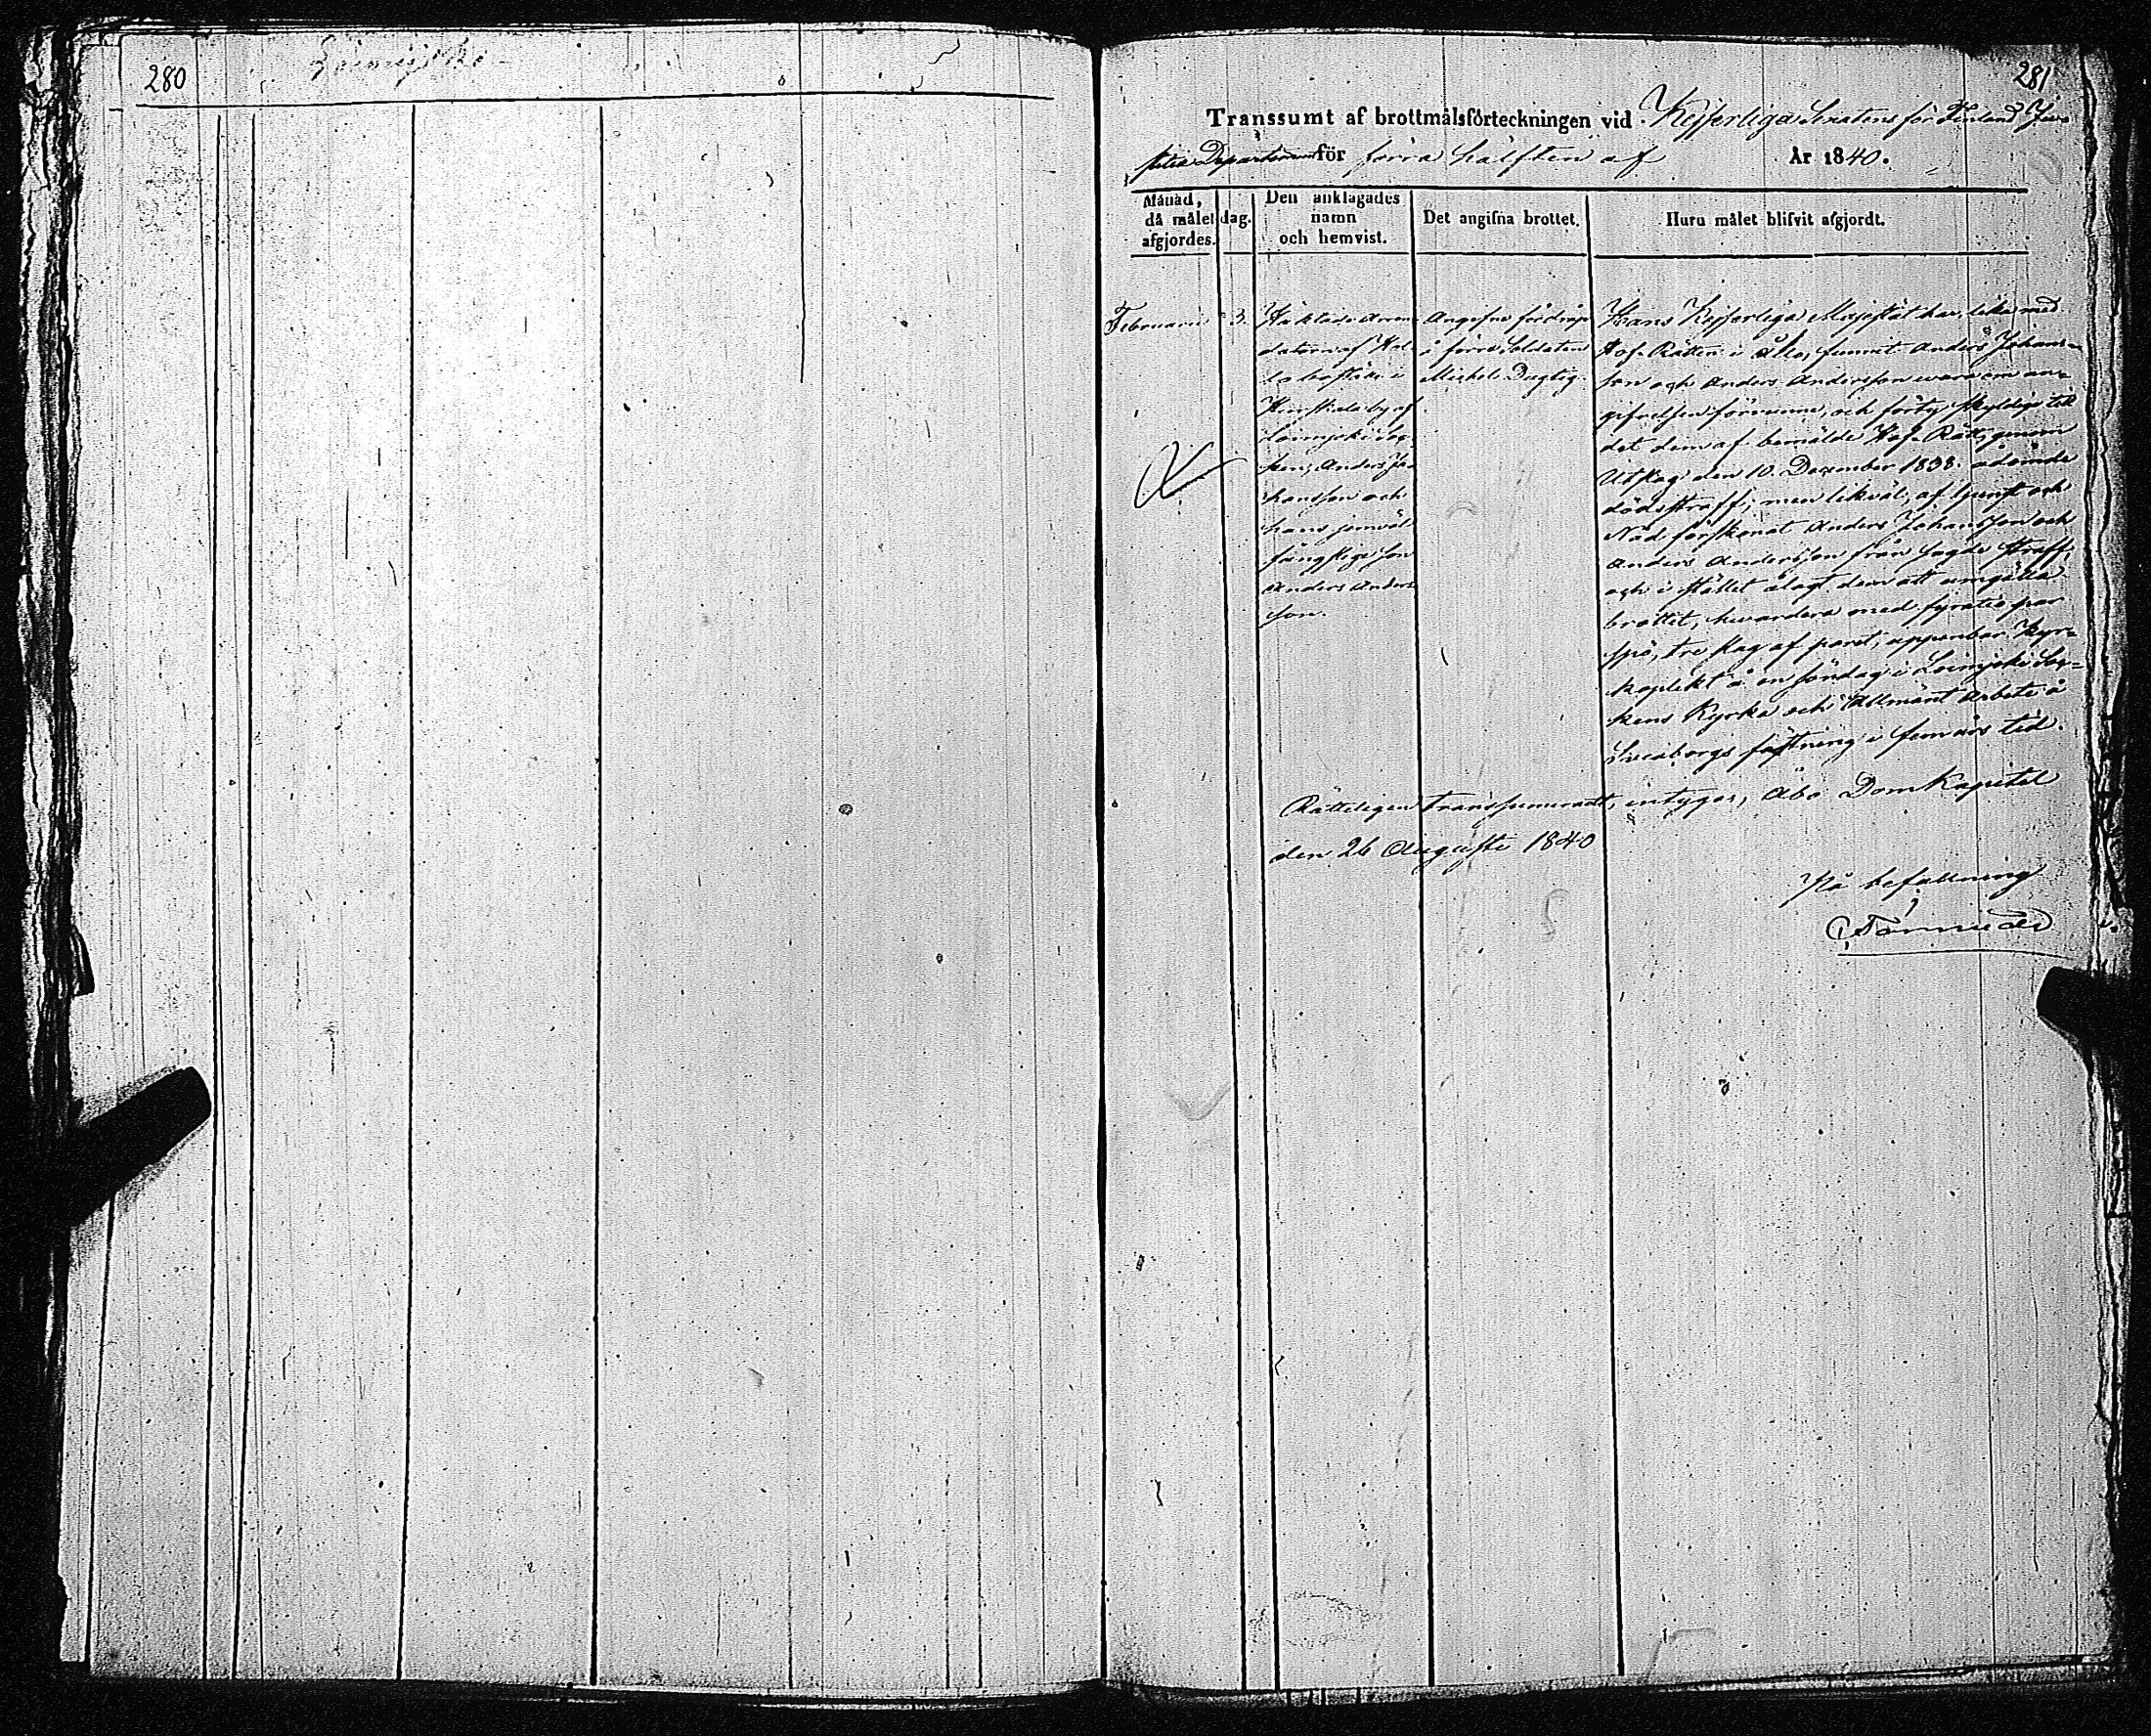 280
Loimijoki
281
Transsumt af brottmålsförteckningen vid Kejserliga Senatens för Finland Jus-
titiæ Departement för förra hälften af År 1840.
Månad, då målet afgjordes.
dag.
Den anklagades namn och hemvist.
Det angifna brottet.
Huru målet blifvit afgjordt.
Februarii
3.
Häktade Arren-
datorn af
bostället i
by af
Loimjoki Soc-
ken, Anders Jo-
hansson och
hans jemväl
fängslige son
Anders Anders-
son.
Angifne för dråp
å förre Soldaten
Michel Dugtig.
Hans Kejserliga Majestät har, lika med
Hof-Rätten i Åbo, funnit Anders Johans-
son och Anders Andersson vara om an-
gifvelsen förvunne, och förty skyldige till
det dem af bemälde Hof-Rätt, genom
Utslag den 10. December 1838. ådömde
dödsstraff; men likväl, af gunst och
Nåd förskonat Anders Johansson och
Anders Andersson från sagde straff,
och i stället ålagt dem att umgälla
brottet, hvardera med fyratio par
spö, tre slag af paret, uppenbar Kyr-
koplikt å en söndag i Loimjoki Soc-
kens Kyrka och Allmänt Arbete å
Sveaborgs fästning i fem års tid.
Rätteligen transsumeradt, intygar, Åbo DomKapitel
den 26 Augusti 1840
På befallning